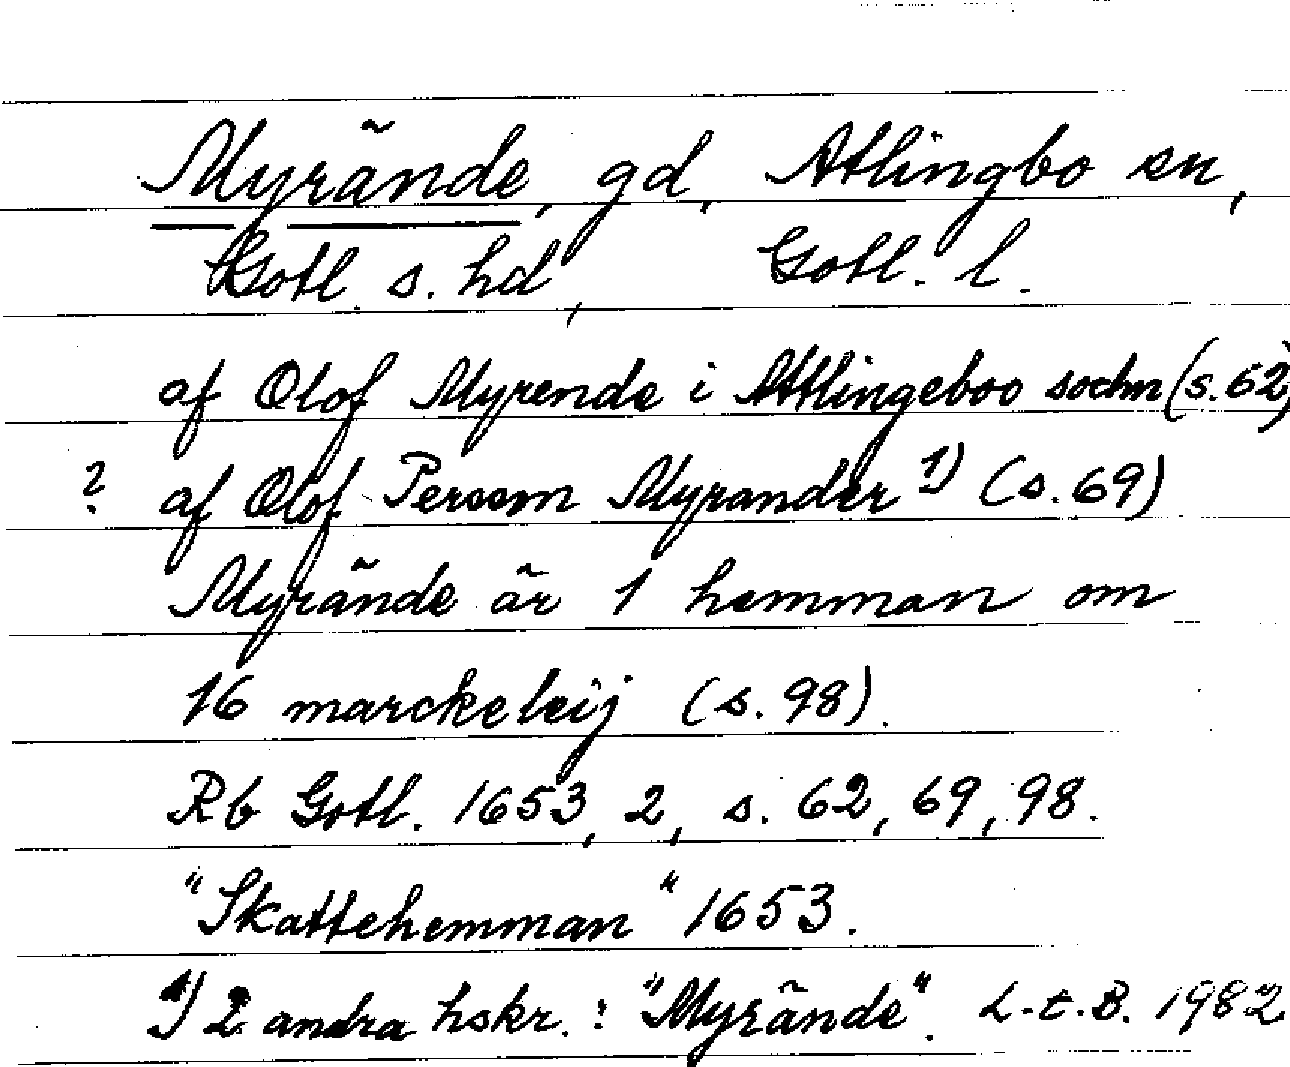 Myrände, gd, Atlingbo sn,
Gotl. s. hd, Gotl. l.
af Olof Myrende i Attlingeboo sochn (s. 62)
? af Olof Persson Myrander 1) (s. 69)
Myrände är 1 hemman om
16 marckeleij (s. 98).
Rb Gotl. 1653, 2, s. 62, 69, 98.
"Skattehemman" 1653.
1) 2 andra hskr.: "Myrände". L-t.B. 1982